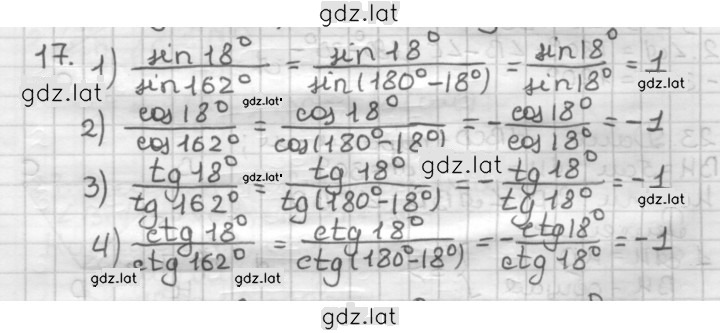 gdz.lat
17. 1) sin 18° / sin 162° = sin 18° / sin(180°-18°) = sin 18° / sin 18° = 1
gdz.lat gdz.lat gdz.lat
2) cos 18° / cos 162° = cos 18° / cos(180°-18°) = - cos 18° / cos 18° = -1
gdz.lat
3) tg 18° / tg 162° = tg 18° / tg(180°-18°) = - tg 18° / tg 18° = -1
gdz.lat
4) ctg 18° / ctg 162° = ctg 18° / ctg(180°-18°) = - ctg 18° / ctg 18° = -1
gdz.lat gdz.lat gdz.lat
gdz.lat